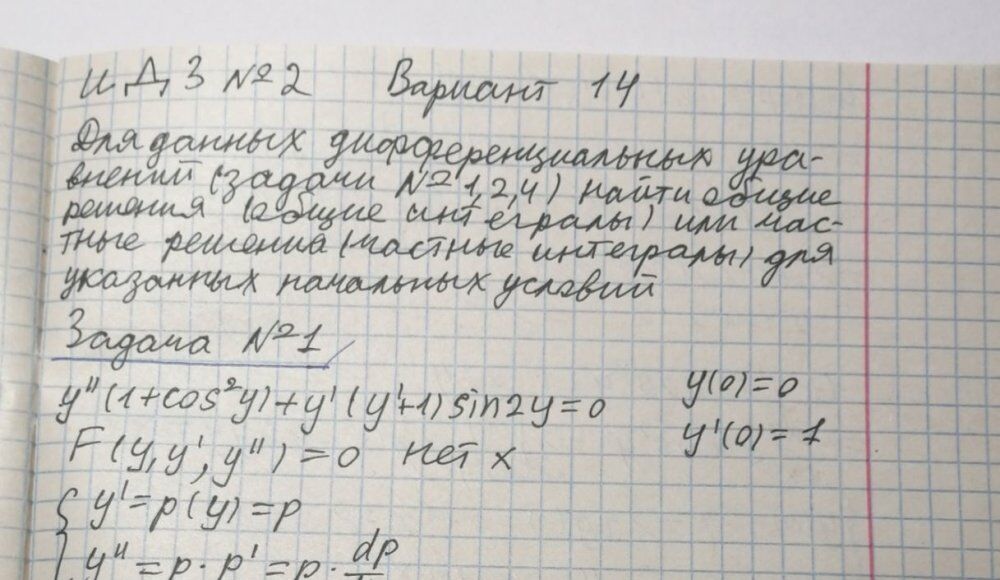 И.Д.З №2 Вариант 14
Для данных дифференциальных ура-
внений (задачи №1,2,4) найти общие
решения (общие интегралы) или час-
тные решения (частные интегралы) для
указанных начальных условий
Задача №1
y''(1+cos²y)+y'(y'+1)sin2y=0 y(0)=0
F(y,y',y'')=0 нет x y'(0)=1
{ y'=p(y)=p
y''=p·p'=p·dp